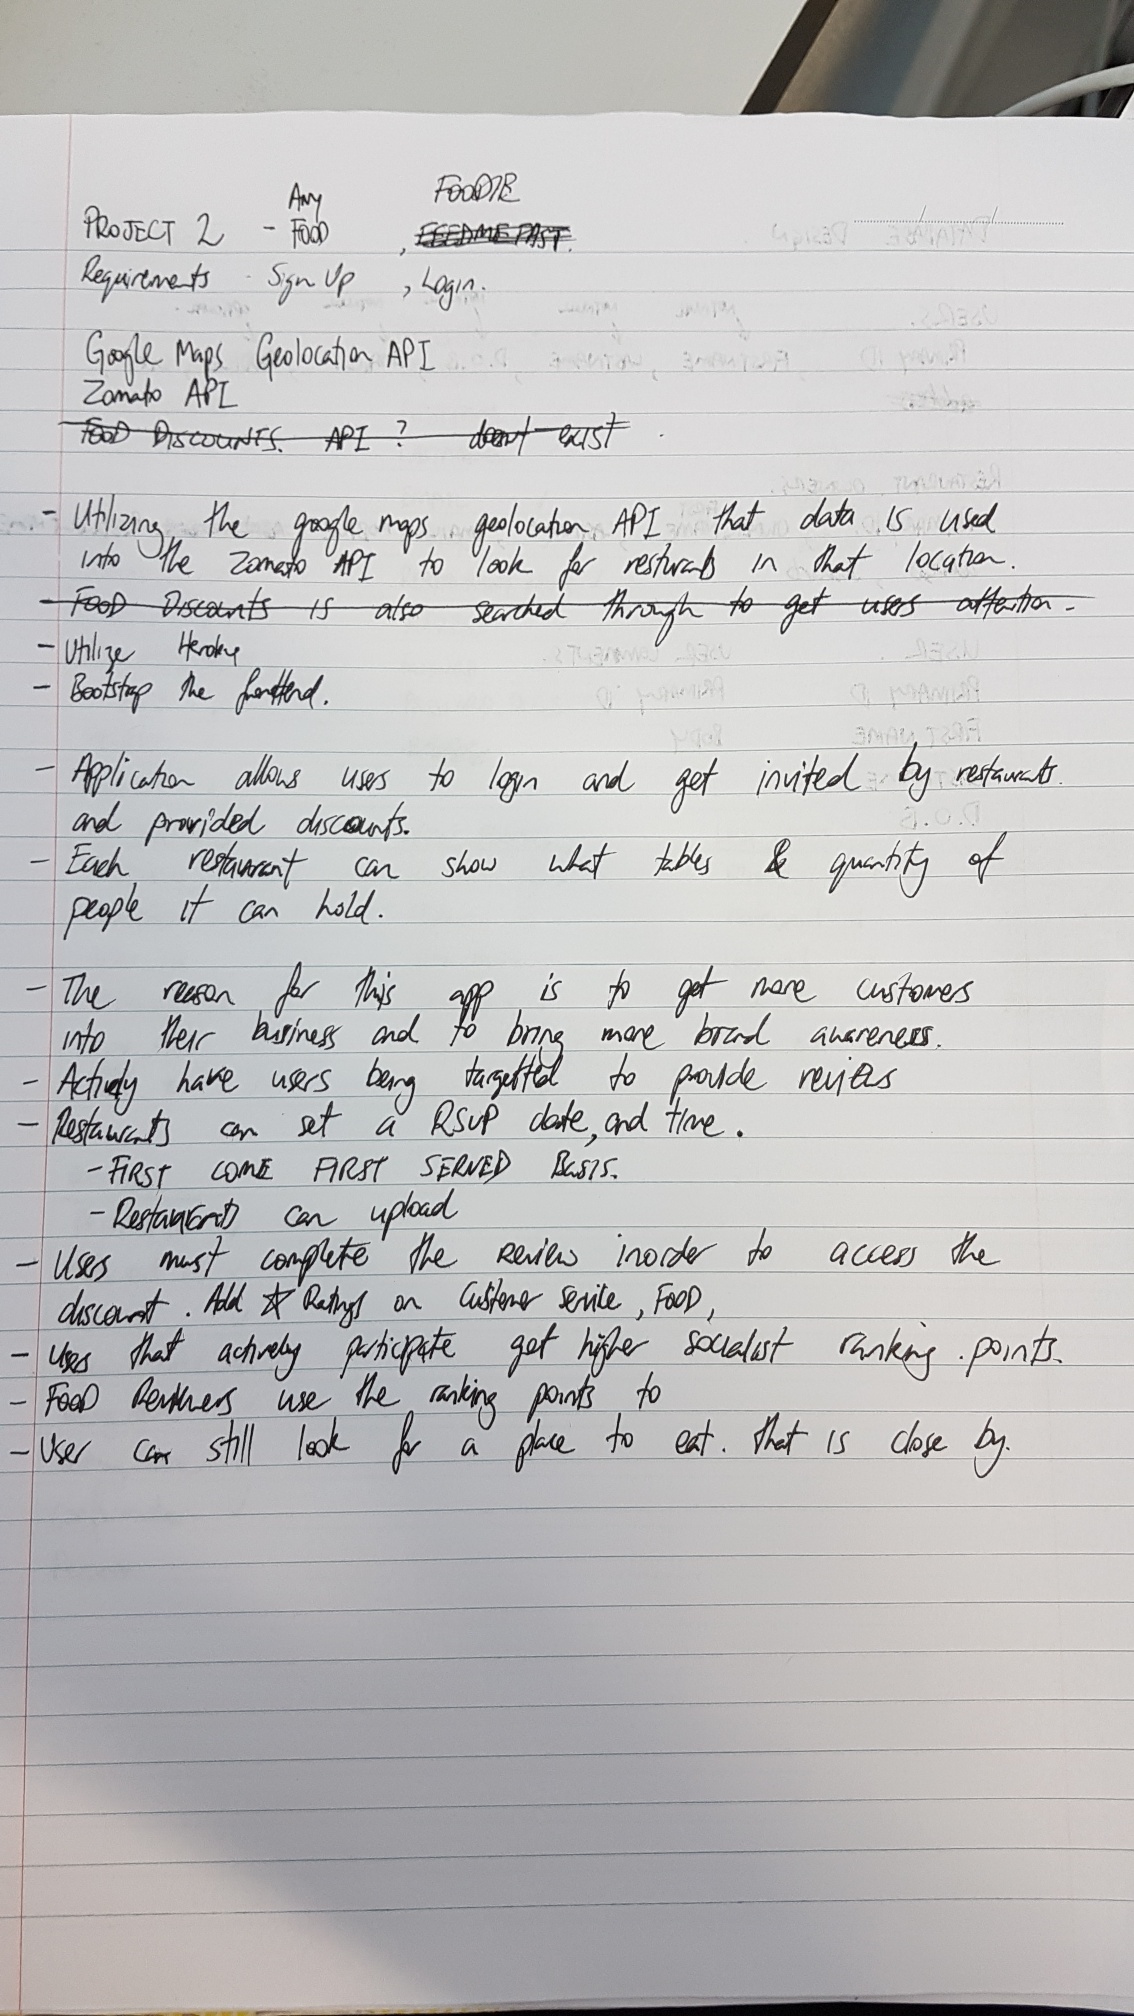 Any FOODIE
PROJECT 2 - FOOD, FEEDMEFAST.
Requirements - Sign Up, Login.
Google Maps Geolocation API
Zomato API
FOOD DISCOUNTS. API ? doesnt exist
- Utilizing the google maps geolocation API that data is used
into the Zomato API to look for in that location.
- FOOD Discounts is also searched through to get users attention.
- Utilize Heroku
- Bootstrap the frontend.
- Application allows users to login and get invited by restaurants.
and provided discounts.
- Each restaurant can show what tables & quantity of
people it can hold.
- The reason for this app is to get more customers
into their business and to bring more brand awareness.
- Actively have users being targetted to provide reviews
- Restaurants can set a RSVP date, and time.
- FIRST COME FIRST SERVED BASIS.
- Restaurants can upload
- Users must complete the review inorder to access the
discount. Add ☆ Ratings on Customer Service, FOOD,
- Users that actively participate get higher socialist ranking points.
- FOOD use the ranking points to
- User can still look for a place to eat. that is close by.
DATABASE DESIGN
USERS.
PRIMARY ID FIRSTNAME, LASTNAME, D.O.B
RESTAURANT OWNERS.
USER USER COMMENTS.
PRIMARY ID PRIMARY ID
FIRST NAME BODY
D.O.B